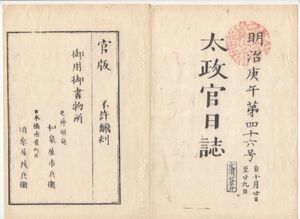 明治庚午第四十六号
自十月廿日
至廿九日
太政官日誌
官版
不許翻刻
御用御書物所
芝神明前
和泉屋市兵衛
日本橋南壹町目
須原屋茂兵衛